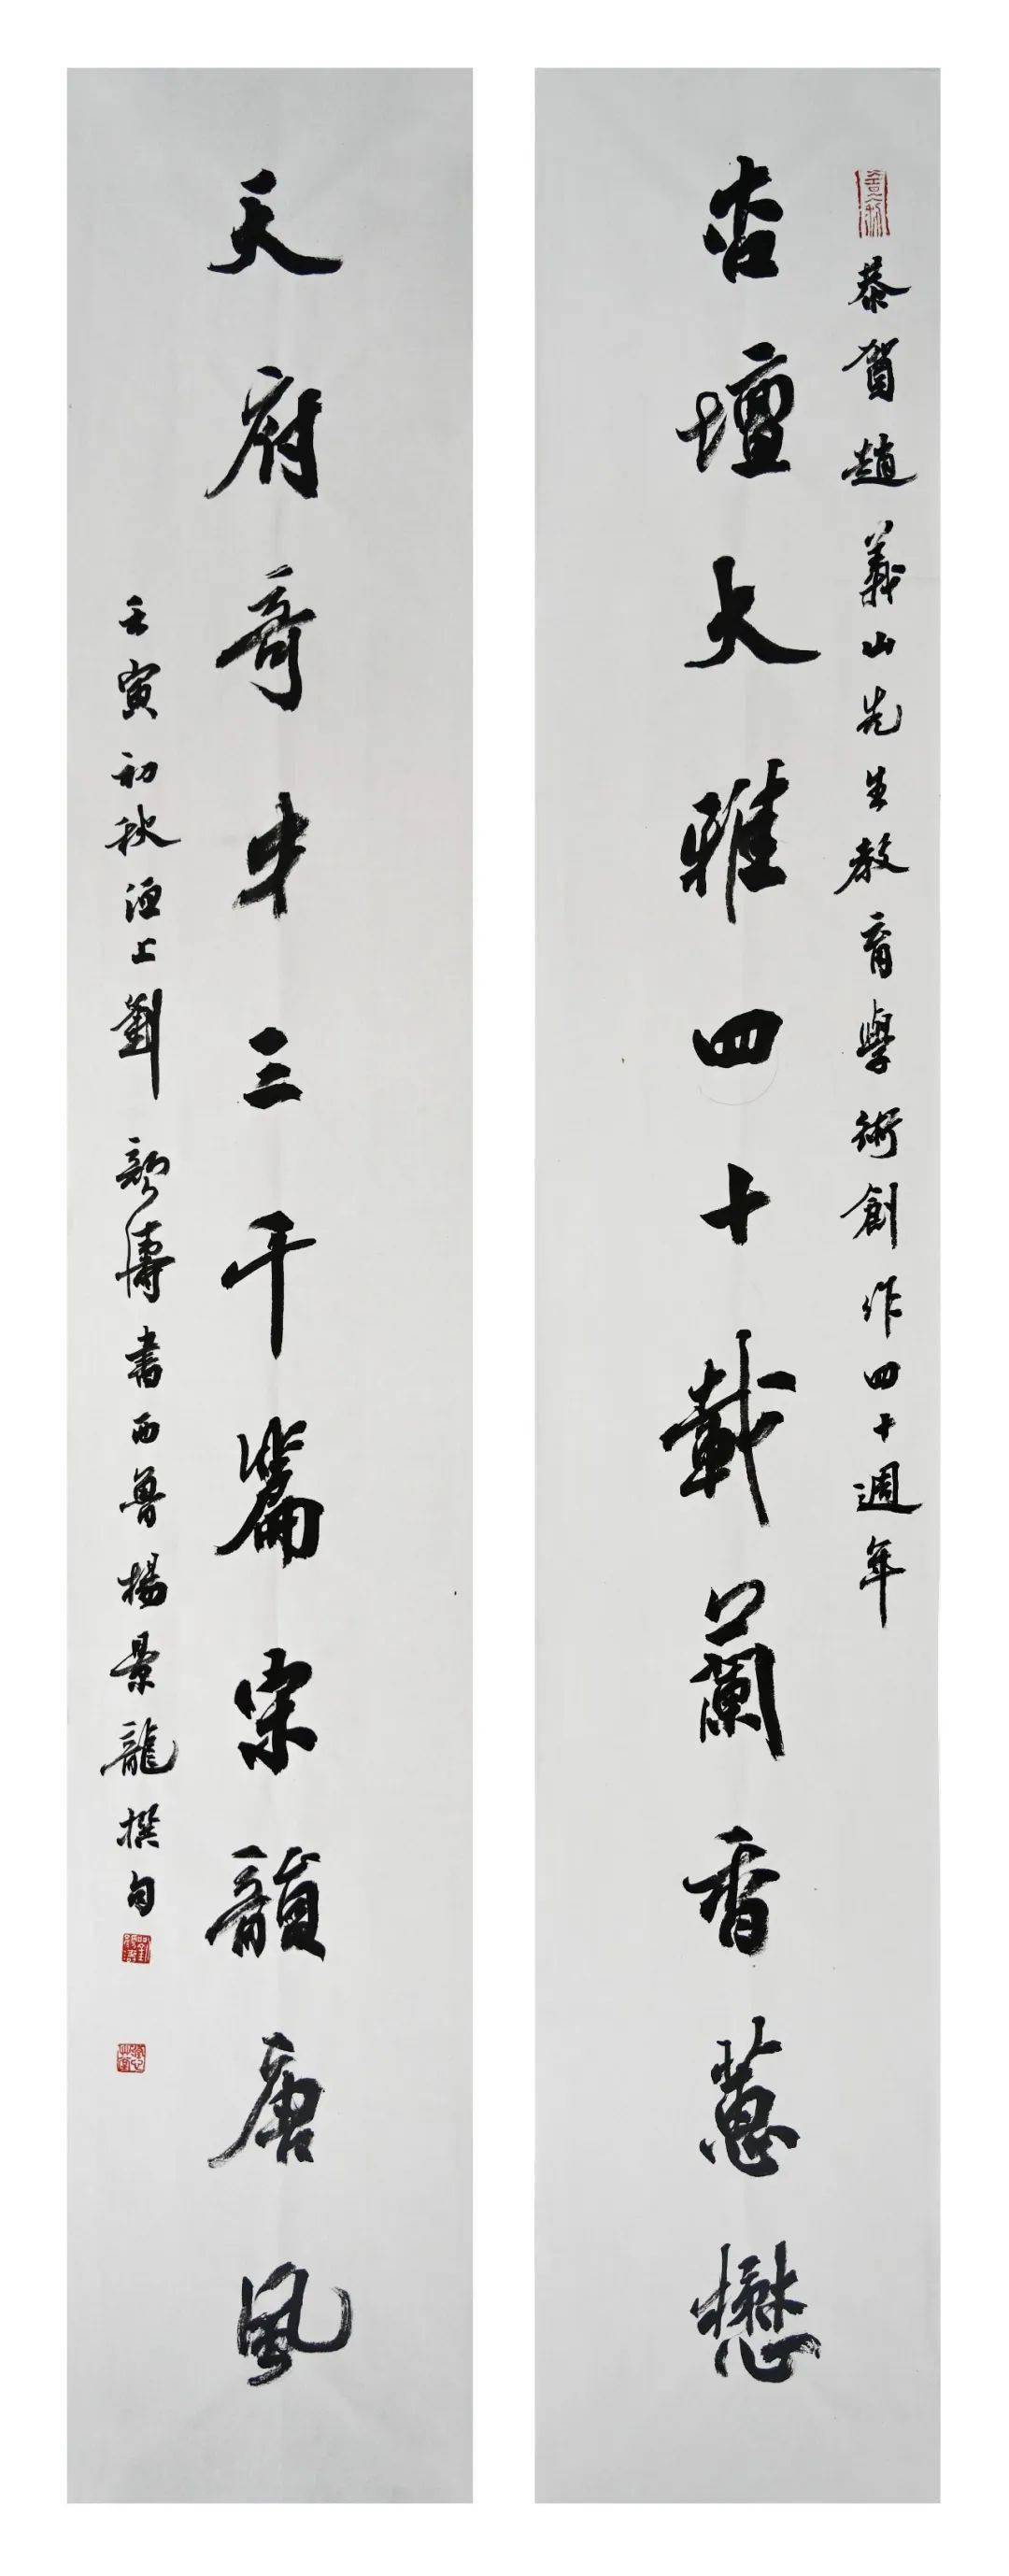 恭賀趙義山先生教育學術創作四十週年
杏壇大雅四十載蘭香蕙懋
天府奇才三千篇宋韻唐風
壬寅初秋湮上劉新濤書西魯楊景龍撰句